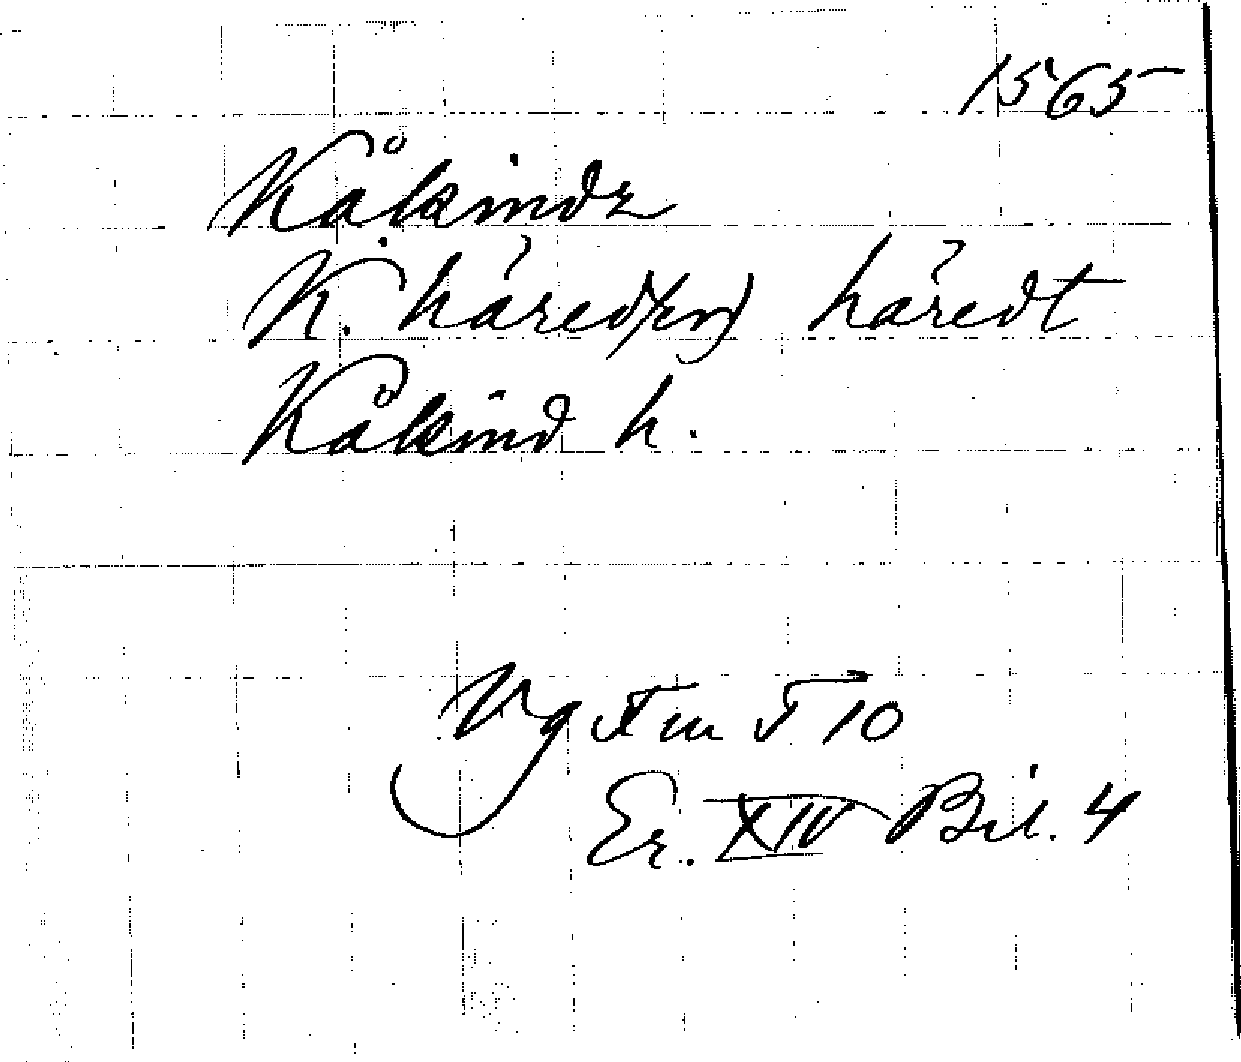 1565
Kåkindz
K. häred(en) häredt
Kåkind h.
Vg X III V 10
Er. XIV Bil. 4